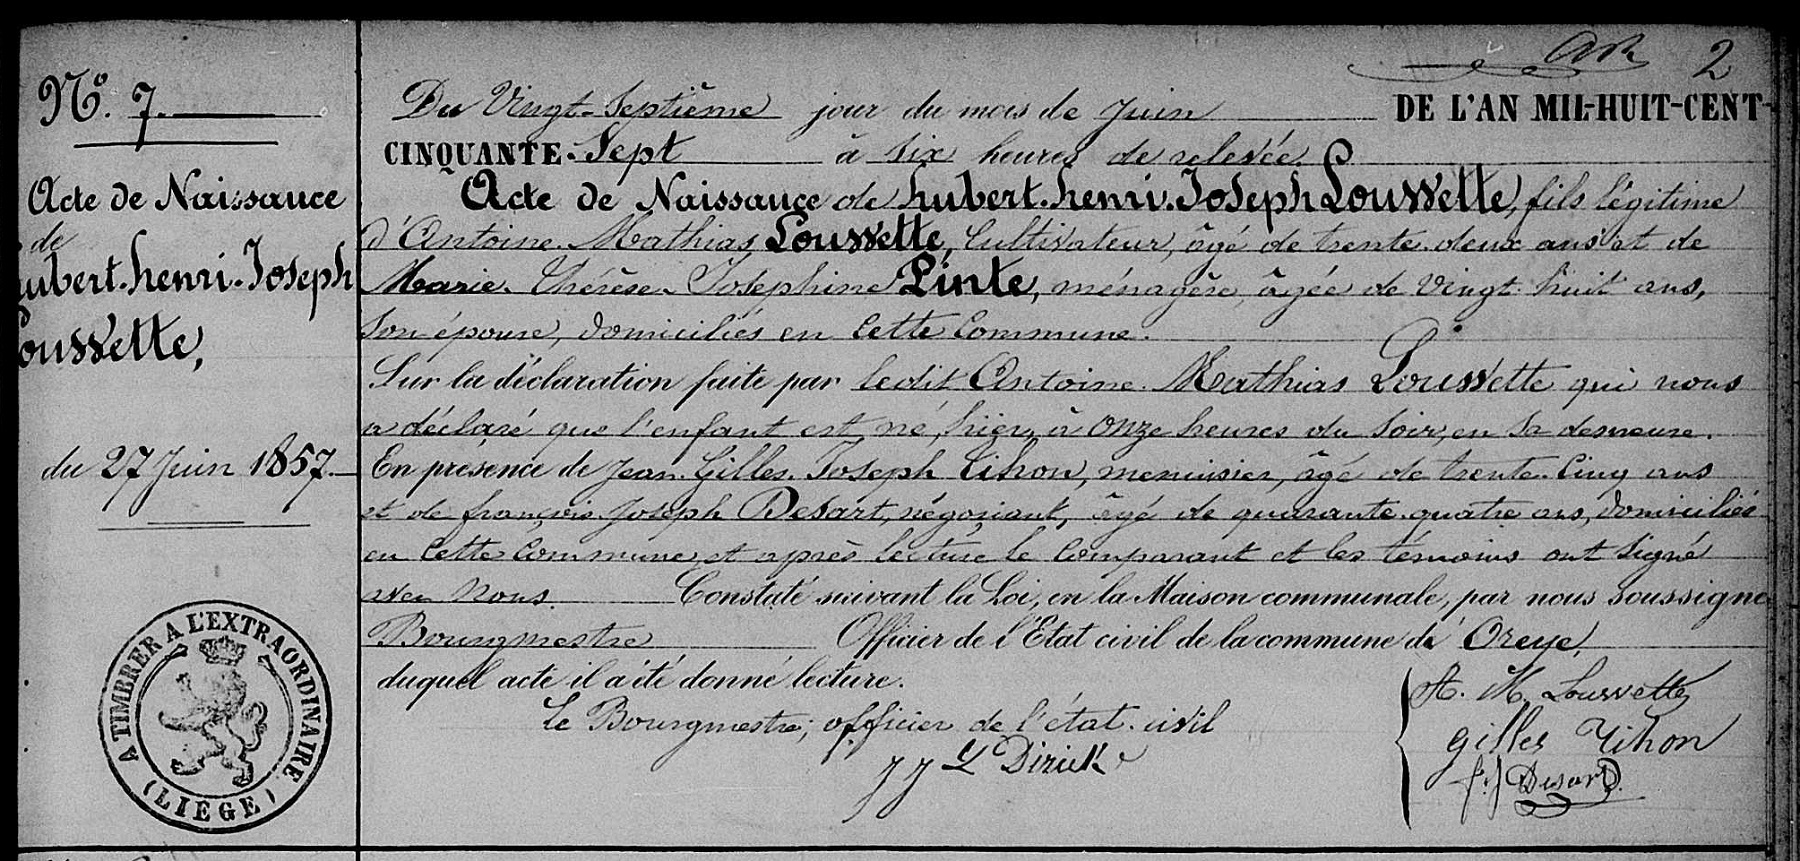 AR 2
Nº. 7.
Acte de Naissance
de
ubert. henri. Joseph
oussette,
du 27 Juin 1857.
A TIMBRER A L'EXTRAORDINAIRE
(LIEGE)
Du Vingt-Septième jour du mois de Juin DE L'AN MIL-HUIT-CENT-
CINQUANTE-Sept à six heures de relevée.
Acte de Naissance de hubert. henri. Joseph Loussette, fils légitime
d'Antoine. Mathias Loussette, Cultivateur, âgé de trente. deux ans et de
Marie. Thérèse. Josephine Pinte, ménagère, âgée de Vingt. huit ans,
son épouse, domiciliés en Cette Commune.
Sur la déclaration faite par ledit Antoine. Mathias Loussette qui nous
a déclaré que l'enfant est né, hier, à onze heures du Soir, en Sa demeure.
En présence de Jean. Gilles. Joseph Tihon, menuisier, âgé de trente. Cinq ans
et de françois. Joseph Desart, négociant, âgé de quarante. quatre ans, domiciliés
en Cette Commune, et après lecture le Comparant et les témoins ont Signé
avec Nous. Constaté suivant la Loi, en la Maison communale, par nous soussigné
Bourgmestre Officier de l'Etat civil de la commune de Oreye,
duquel acte il a été donné lecture.
Le Bourgmestre, officier de l'état. civil
A. M. Loussette
Gilles Tihon
f. J Desart